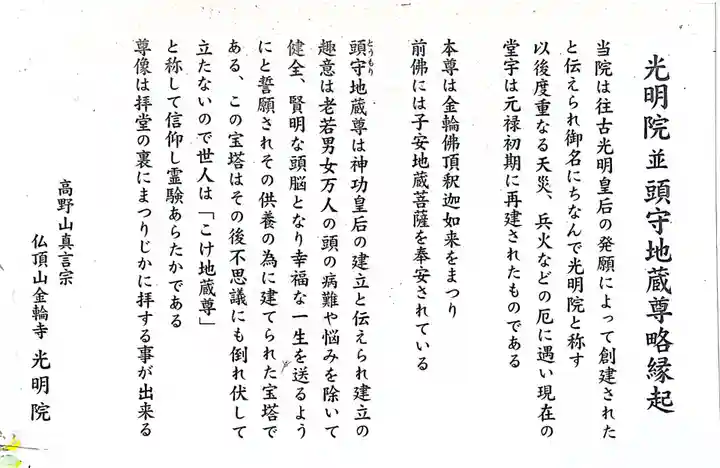 光明院並頭守地蔵尊略縁起
当院は往古光明皇后の発願によって創建された
と伝えられ御名にちなんで光明院と称す
以後度重なる天災、兵火などの厄に遇い現在の
堂宇は元禄初期に再建されたものである
本尊は金輪佛頂釈迦如来をまつり
前佛には子安地蔵菩薩を奉安されている
とうもり
頭守地蔵尊は神功皇后の建立と伝えられ建立の
趣意は老若男女万人の頭の病難や悩みを除いて
健全、賢明な頭脳となり幸福な一生を送るよう
にと誓願されその供養の為に建てられた宝塔で
ある、この宝塔はその後不思議にも倒れ伏して
立たないので世人は「こけ地蔵尊」
と称して信仰し霊験あらたかである
尊像は拝堂の裏にまつりじかに拝する事が出来る
高野山真言宗
仏頂山金輪寺 光明院